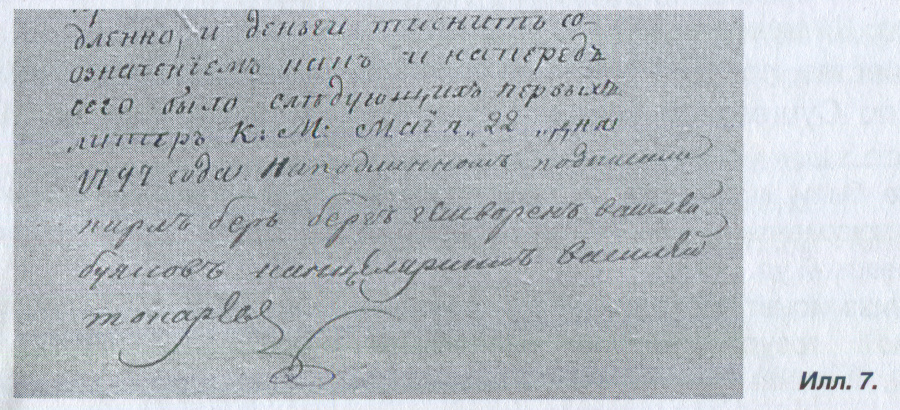 дленно, и деньги тиснить со-
означениемъ какъ и напередъ
сего было следующихъ первыхъ
литеръ К: М: Маія „22 „ дня
1747 года На подлинномъ подписали
кирлъ беръ бергъ гешворенъ василей
буяковъ канцеляристъ василей
токарев
Илл. 7.